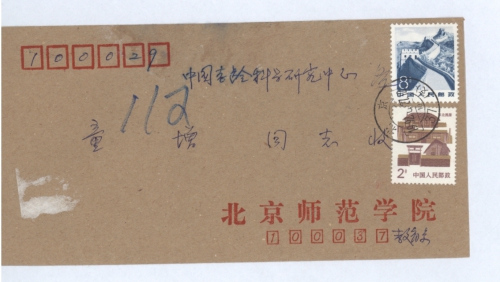 100029
8分
中国人民邮政
中国老龄科学研究中心
112
童增 同志 收
2分
中国人民邮政
北京师范学院
100037